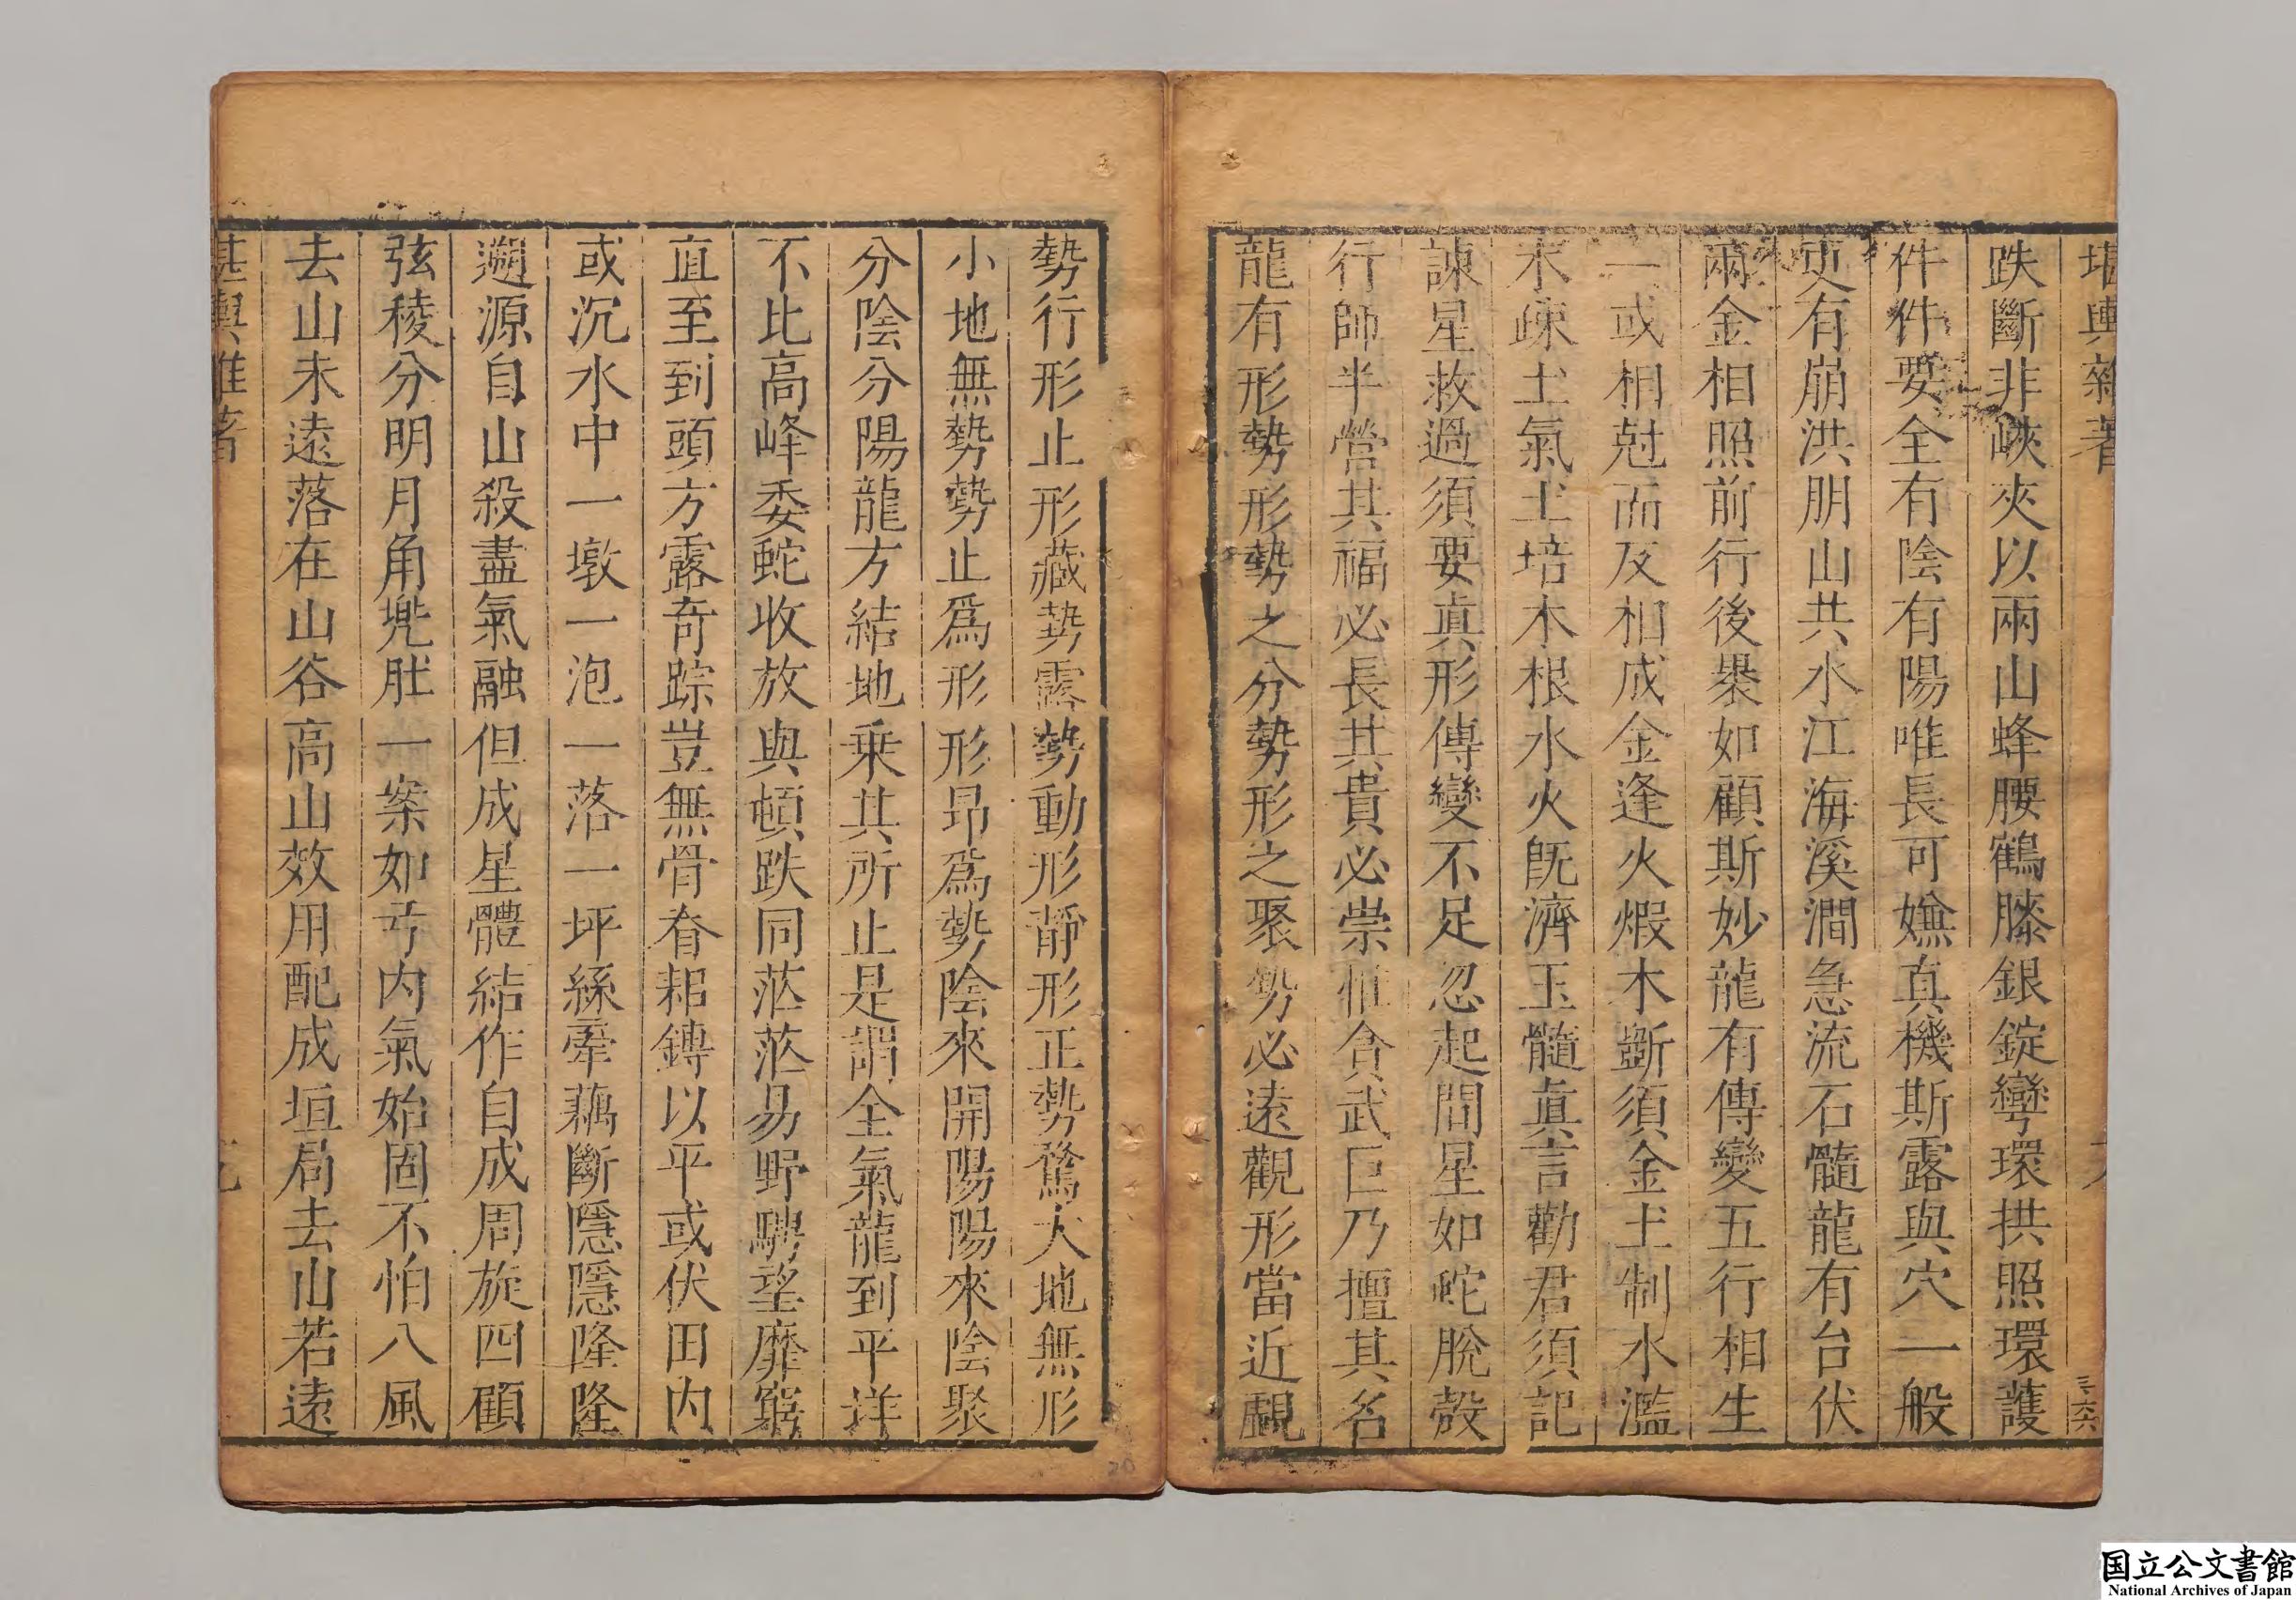 堪輿雜著
三六
跌斷非峽夾以兩山蜂腰鶴膝銀錠彎環拱照環護
件件要全有陰有陽唯長可嫌真機斯露與穴一般
更有崩洪朋山共水江海溪澗急流石髓龍有台伏
兩金相照前行後㬪如顧斯妙龍有傳變五行相生
一或相尅而反相成金逢火煆木斲須金土制水濫
木疎土氣土培木根水火既濟玉髓真言勸君須記
諫星救過須要真形傳變不足忽起問星如蛇脫殼
行師半營其福必長其貴必崇惟貪武巨乃擅其名
龍有形勢形勢之分勢形之聚勢必遠觀形當近覷
勢行形止形藏勢露勢動形靜形正勢驁大地無形
小地無勢勢止爲形形昂爲勢陰來開陽陽來陰聚
分陰分陽龍方結地乘其所止是謂全氣龍到平洋
不比高峰委蛇收放與頓跌同茫茫易野騁望靡窮
直至到頭方露奇踪豈無骨脊耜鏄以平或伏田內
或沉水中一墩一泡一落一坪絲牽藕斷隱隱隆隆
遡源自山殺盡氣融但成星體結作自成周旋四顧
弦稜分明月角兠肚一案如弓內氣始固不怕八風
去山未遠落在山谷高山效用配成垣局去山若遠
堪輿雜著
国立公文書館
National Archives of Japan